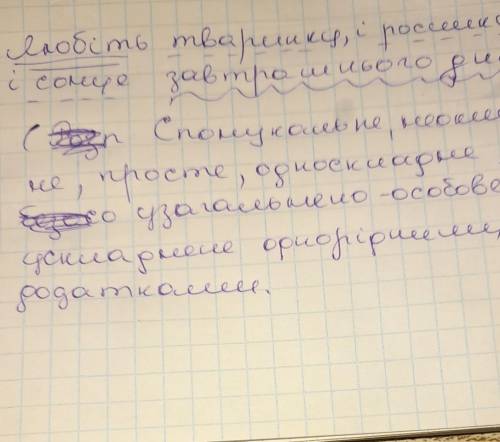 Любіть тваринку, і рослинку
і сонце завтрашнього дн
( п Спонукальне, неокли
не, просте, односкладне
о узагальнено-особове
ускладнене однорідними
додатками.